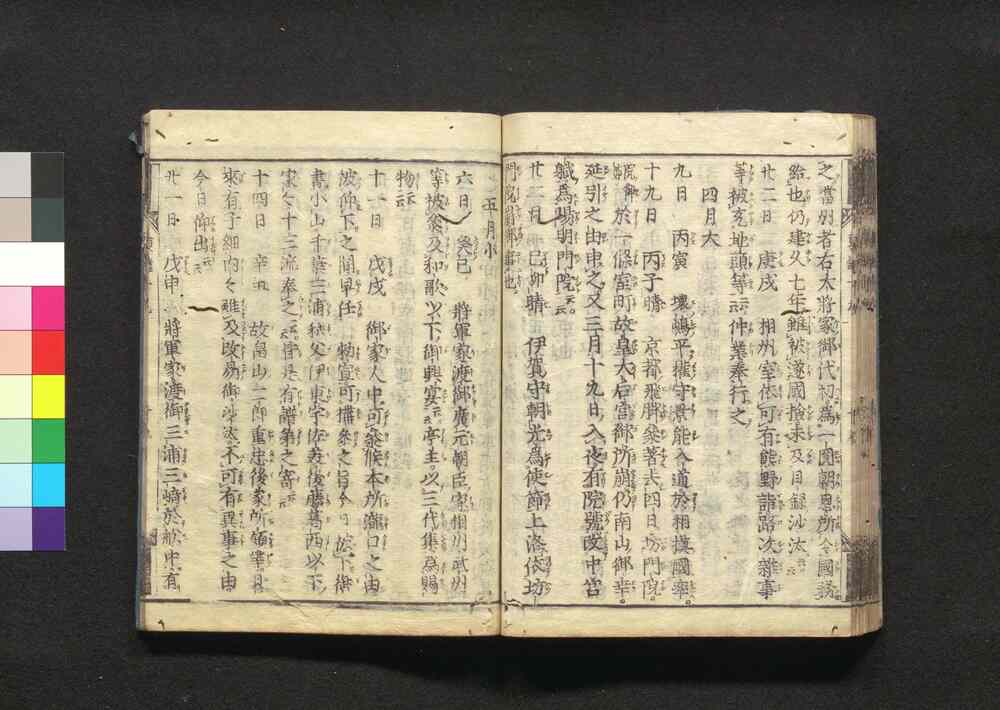 之當州者右大將家御代初爲一圓朝恩所令國務
給也仍建久七年雖被遂國檢未及目録沙汰云云
廿二日 庚戌 相州室依可有熊野詣路次雜事
等被充地頭等云云仲業奉行之
四月大
九日 丙寅 懷嶋平權守景能入道於相摸國卒
十九日 丙子 晴 京都飛脚參著去四日坊門院
於一條室町故皇大后宮御所崩仍南山御幸
延引之由申之又三月十九日入夜有院號改中宮
職爲陽明門院云云
廿二日 己卯 晴 伊賀守朝光爲使節上洛依坊
門院
五月小
六日 癸巳 將軍家渡御廣元朝臣家相州武州
等被參及和歌以下御興宴云云亭主以三代集爲賜
物云云
十一日 戊戌 御家人中可參候本所瀧口之由
被仰下之間早任 勅宣可撰參之旨今日
書小山千葉三浦秩父伊東宇佐美後藤葛西以下
家々十三流奉之云云皆是有譜第之寄云云
十四日 辛丑 故畠山二郎重忠後家所領等日
來有子細内々雖及改易御沙汰不可有異事之由
今日仰出云云
廿一日 戊申 將軍家渡御三浦三崎於舩中有